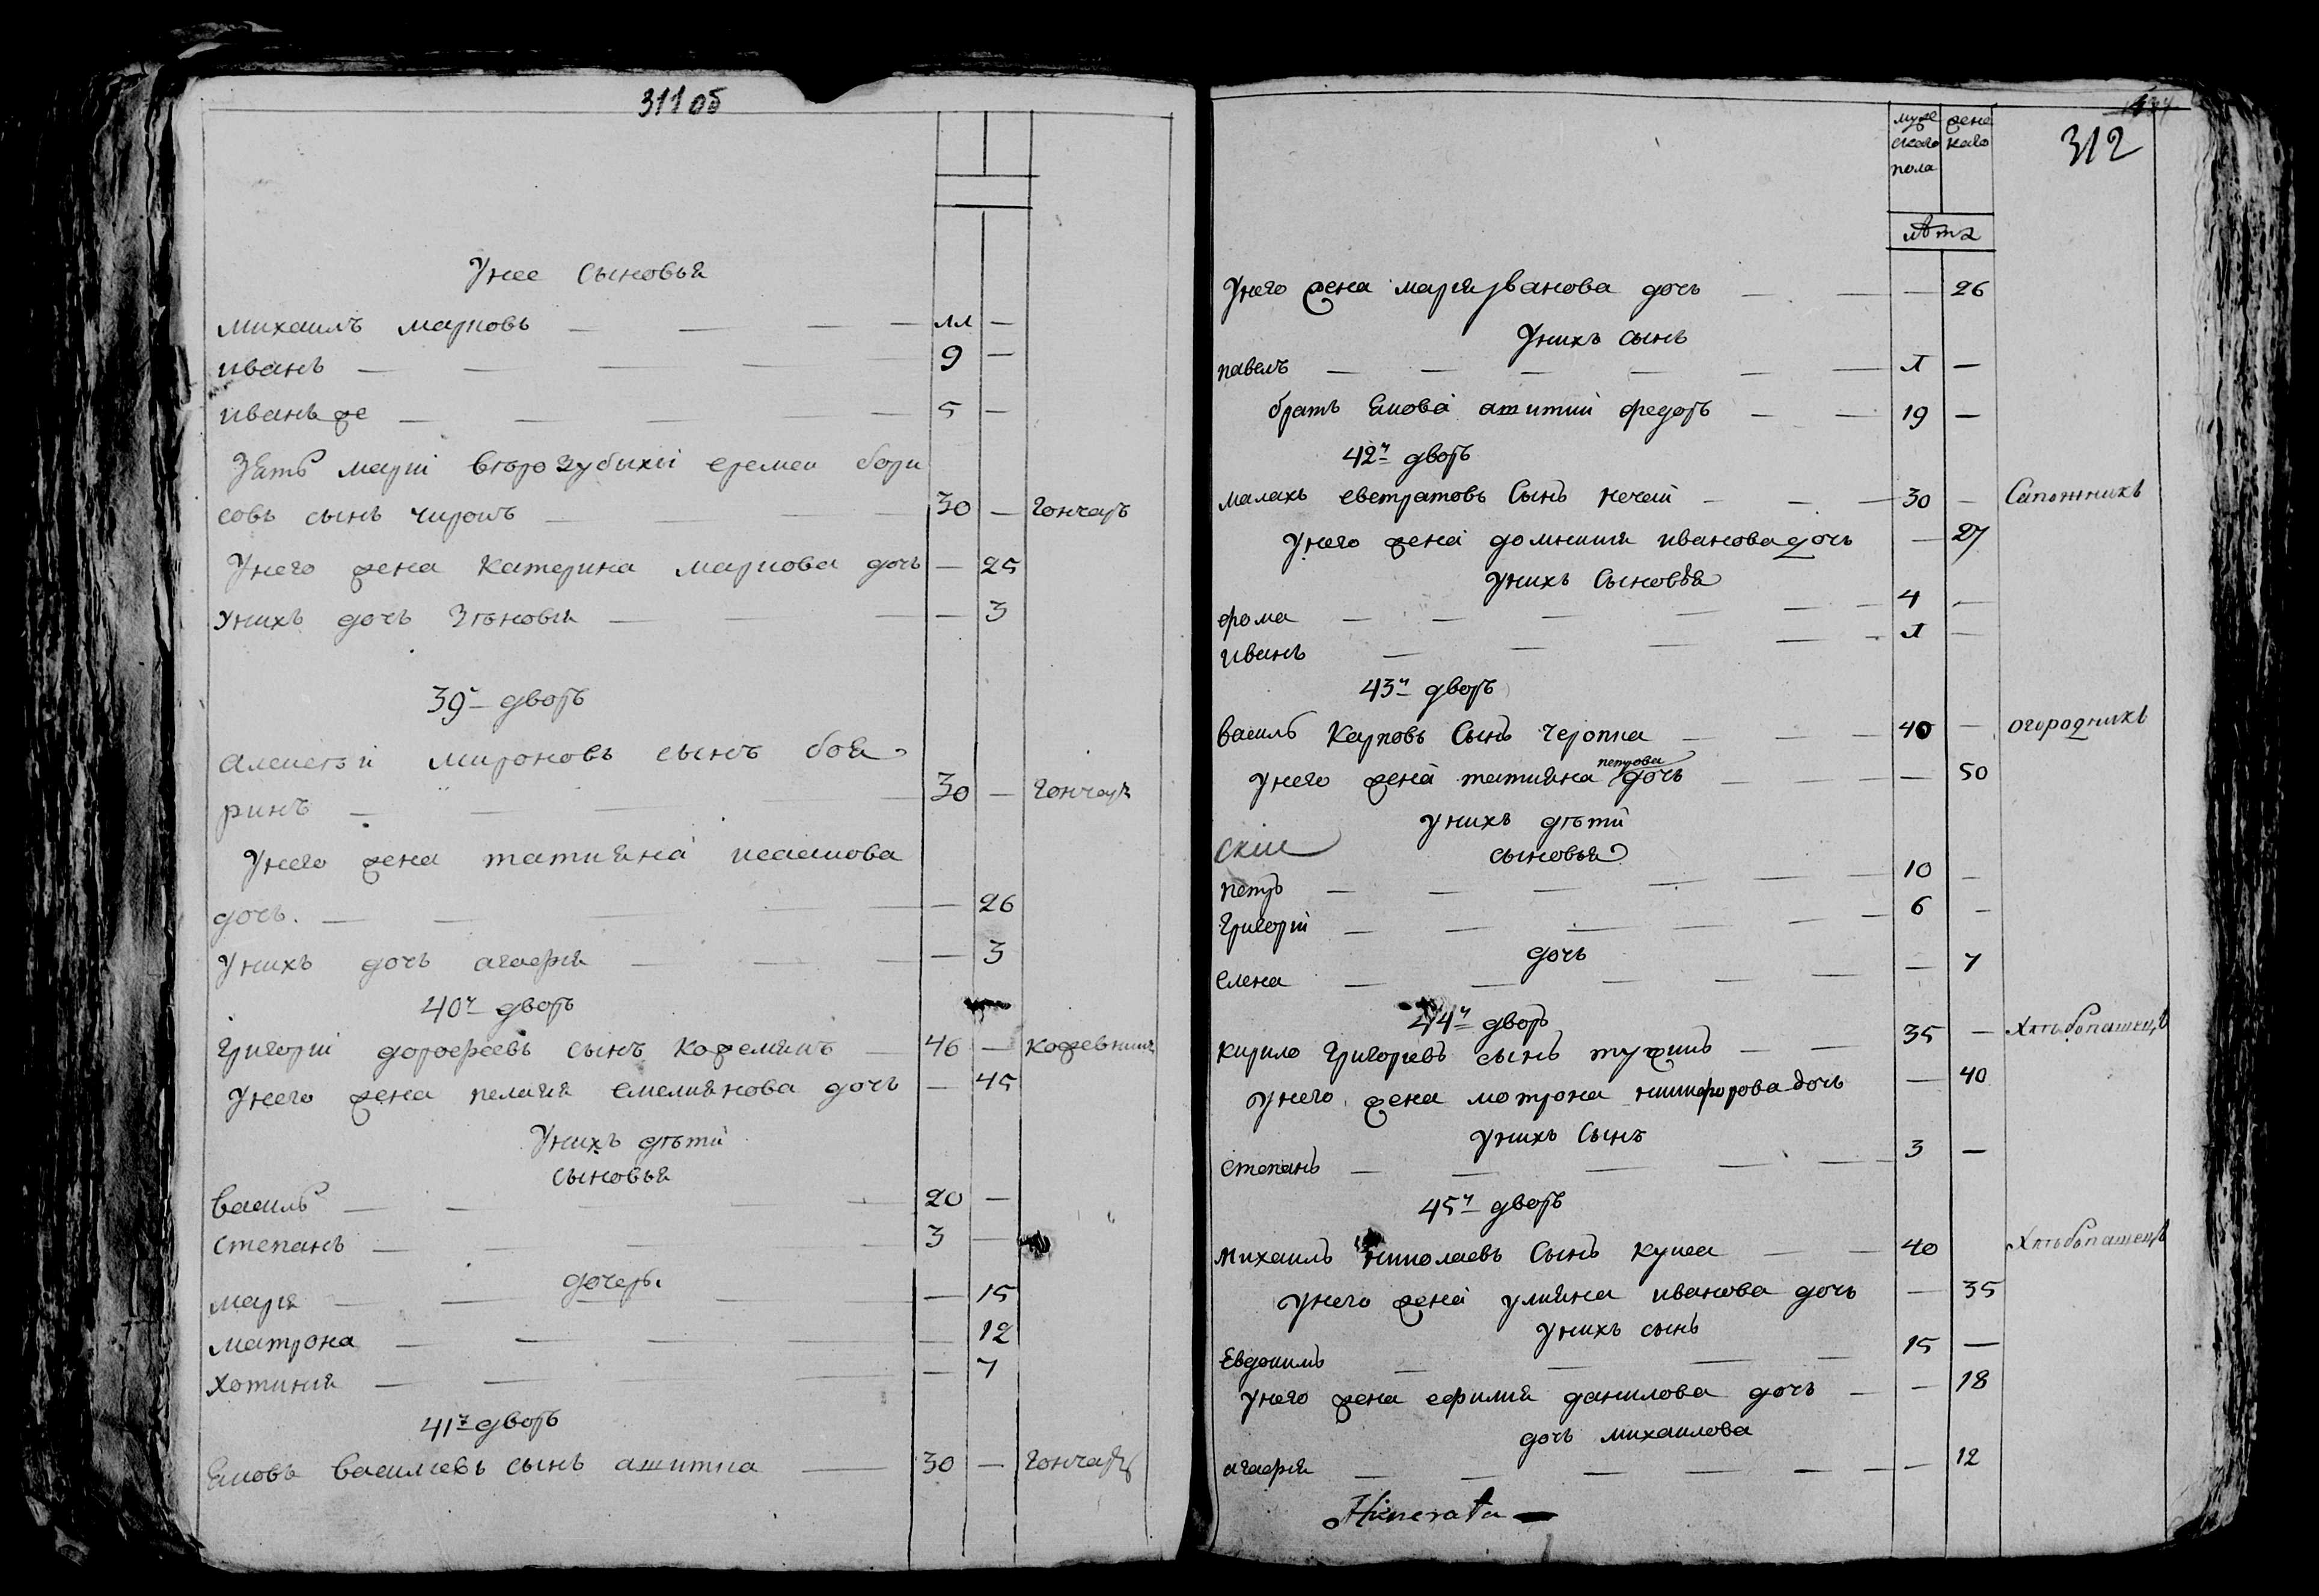 311 об
Унее сыновья
михаилъ марковъ — — — — 11 —
иванъ — — — — 9 —
иванъ же — — — — 5 —
Зять марiи второзубыхи еремеи бори
совъ сынъ чирокъ — — — 30 — Гончаръ
Унего жена катерина маркова дочь — 25
унихъ дочь Зѣновия — — — — 3
39й дворъ
алексѣй мироновъ сынъ боя
ринъ — — — — 30 — Гончаръ
Унего жена татияна исакова
дочь. — — — — — 26
Унихъ дочь агафия — — — — 3
40й дворъ
Григорiи дорофеевъ сынъ кожемякъ — 46 — кожевникъ
Унего жена пелагия емелиянова дочь — 45
Унихъ дѣти
сыновья
василь — — — — 20 —
степанъ — — — — 3 —
дочеры
мария — — — — — 15
матрона — — — — — 12
хотиния — — — — — 7
41й дворъ
Яковъ василиевъ сынъ ашитка — 30 — Гончаръ
муже женс
скаго каго
пола
312
лѣта
Унего жена мария Иванова дочь — — — 26
Унихъ сынъ
павелъ — — — — — — 1 —
братъ Якова ашитки федоръ — — 19 —
42й дворъ
малахъ евстратовъ Сынъ нечай — — — 30 — Сапожникъ
Унего жена домникия иванова дочь — 27
Унихъ Сыновья
фома — — — — — 4 —
иванъ — — — — — 1 —
43й дворъ
василь Карповъ Сынъ черопка — — — 40 — огородникъ
петрова
Унего жена татияна дочь — — — — 50
унихъ дѣти
скiи сыновья
петръ — — — — — — 10 —
Григорiи — — — — — 6 —
дочь
елена — — — — — — 7
44й дворъ
кирило Григориевъ сынъ тужикъ — — 35 — хлѣбопашецъ
Унего жена мотрона никифорова дочь — 40
Унихъ Сынъ
степанъ — — — — — 3 —
45й дворъ
михаилъ николаевъ Сынъ куцка — — 40 хлѣбопашецъ
Унего жена улияна иванова дочь — 35
Унихъ сынъ
Евдокимъ — — — — 15 —
Унего жена ефимия данилова дочь — — 18
дочь михаилова
агафия — — — — — — — 12